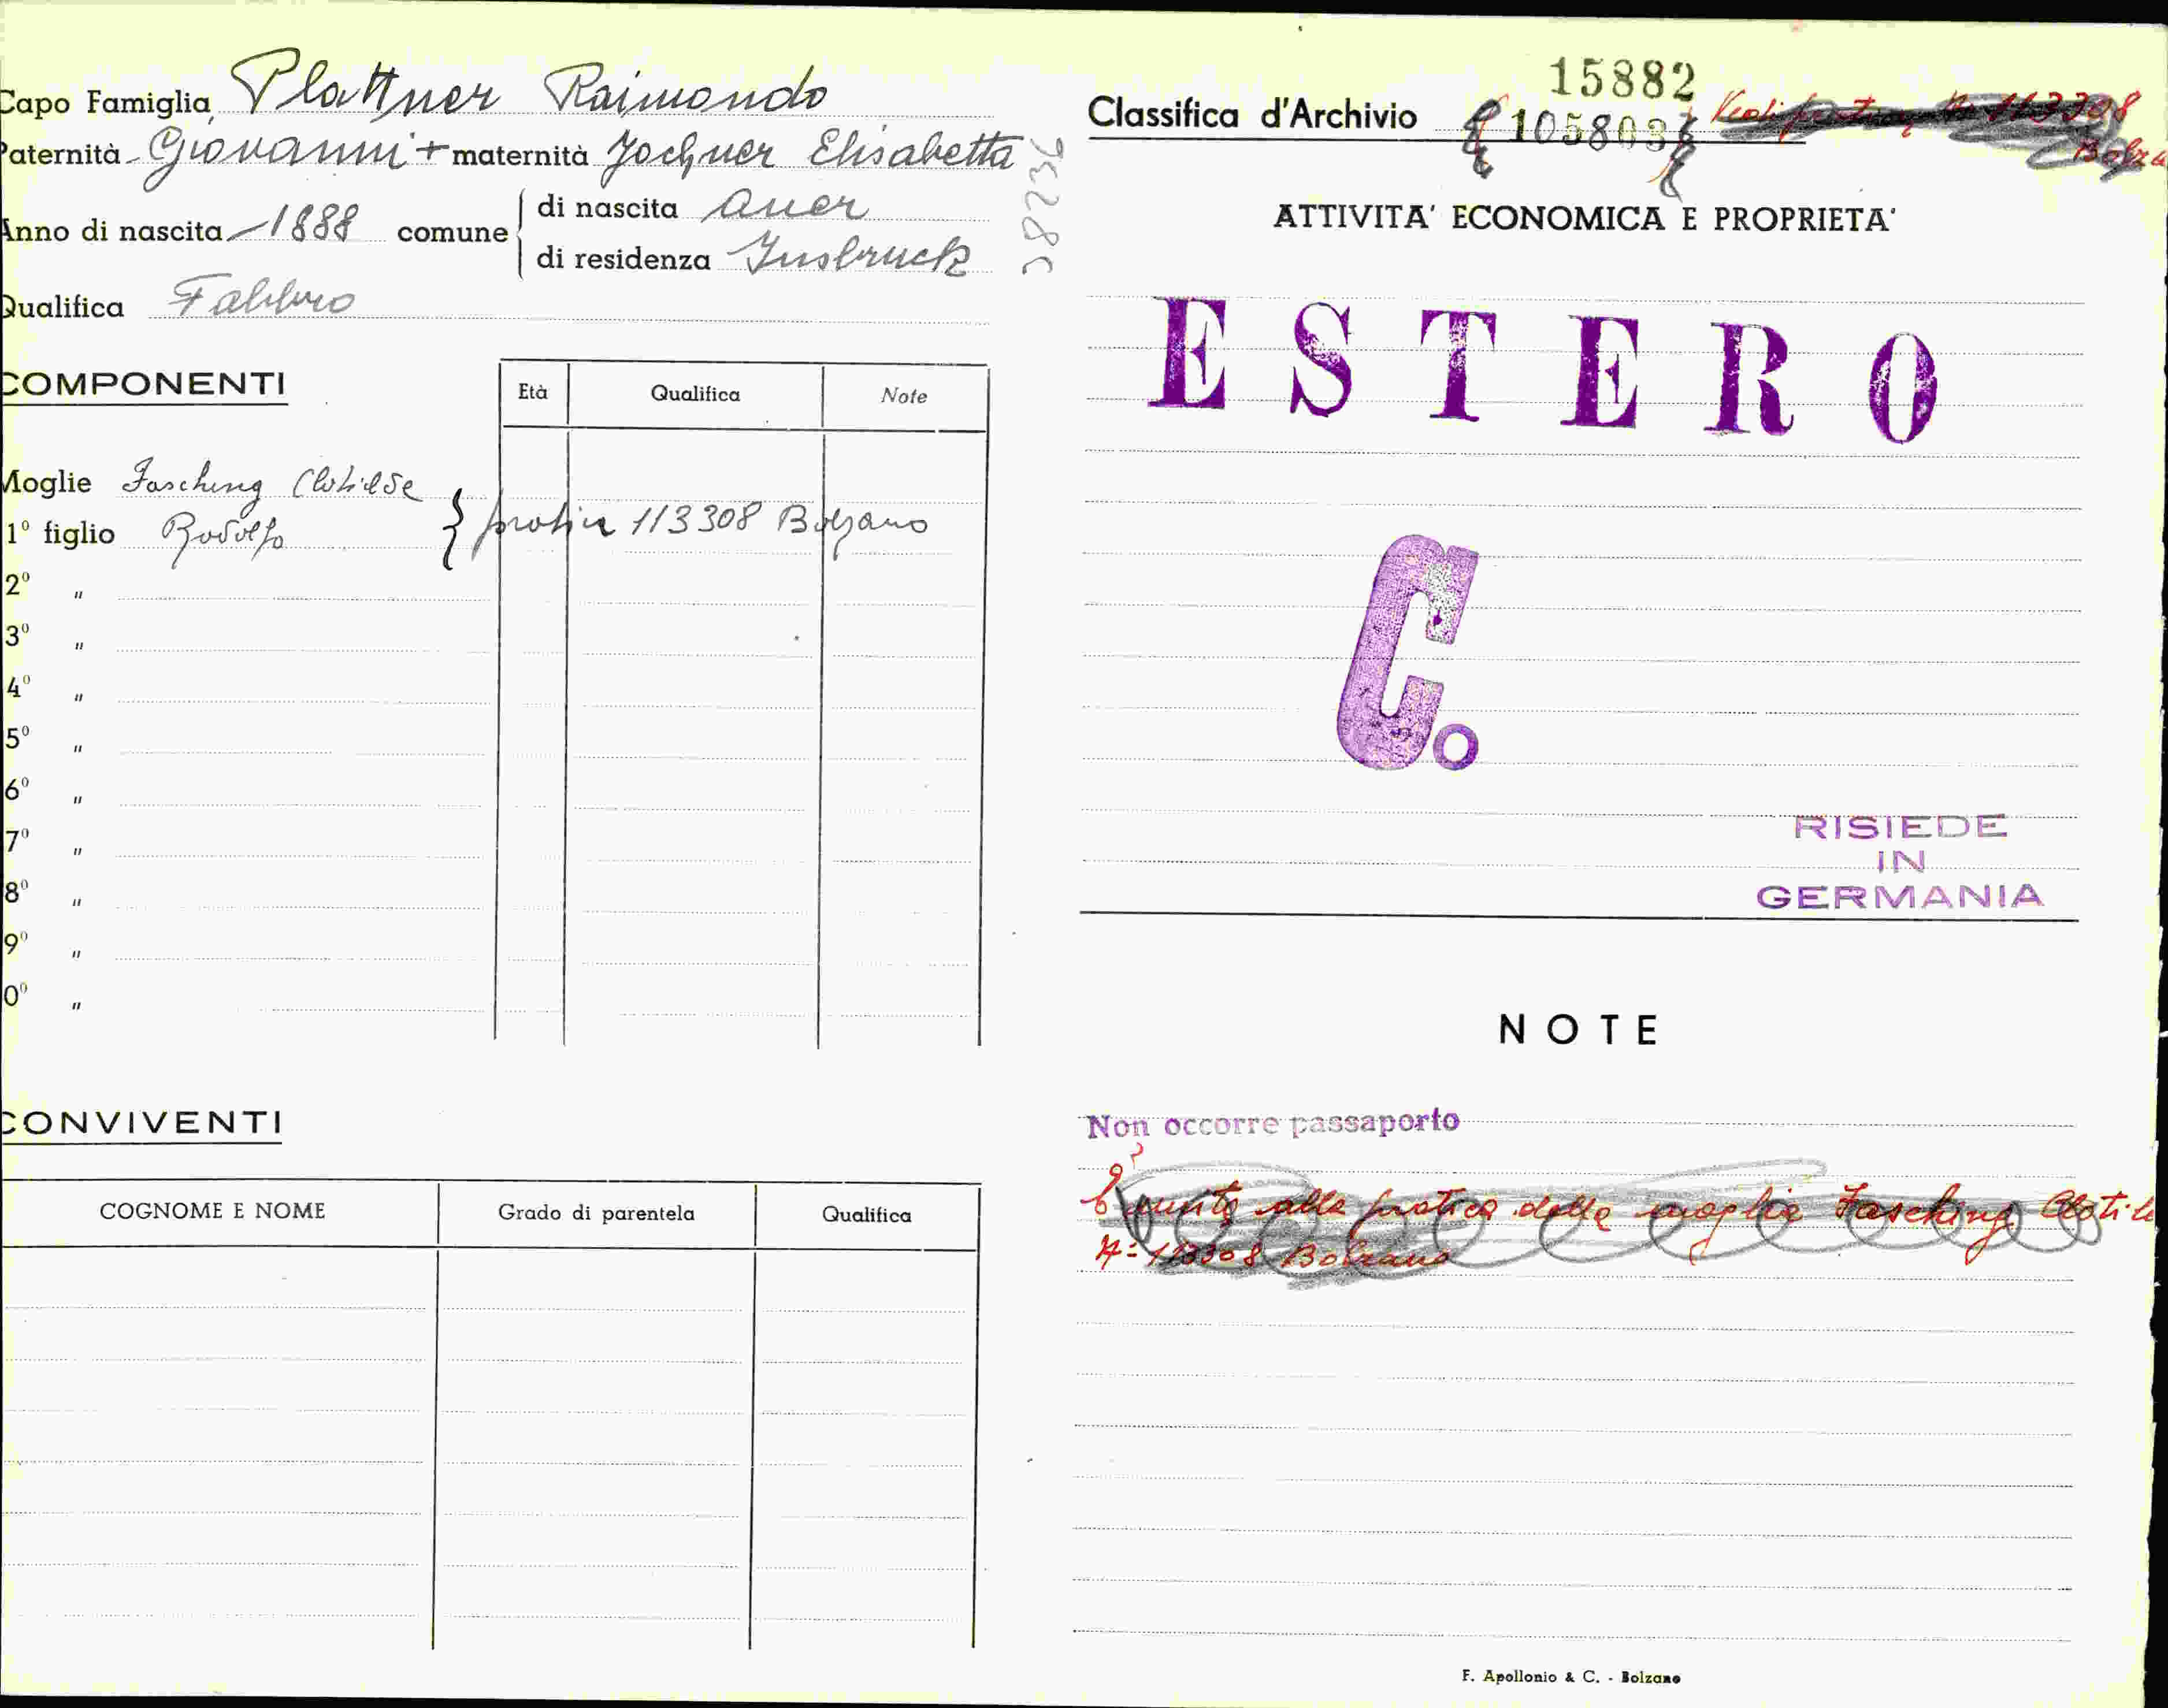 Capo Famiglia Plattner Raimondo
Paternità Giovanni + maternità Jochner Elisabetta
Anno di nascita 1888 comune di nascita Auer
di residenza Insbruck
Qualifica Fabbro
COMPONENTI
Età Qualifica Note
Moglie Fasching Clotilde
1º figlio Rodolfo } 113308 Bolzano
2º "
3º "
4º "
5º "
6º "
7º "
8º "
9º "
0º "
CONVIVENTI
COGNOME E NOME Grado di parentela Qualifica
15882
Classifica d'Archivio 105803 Vedi pratica No 113308
Bolza
ATTIVITA' ECONOMICA E PROPRIETA'
ESTERO
C.
RISIEDE
IN
GERMANIA
NOTE
Non occorre passaporto
È unito alla pratica della moglie Fasching Clotil
Nº 113308 Bolzano
F. Apollonio & C. - Bolzano